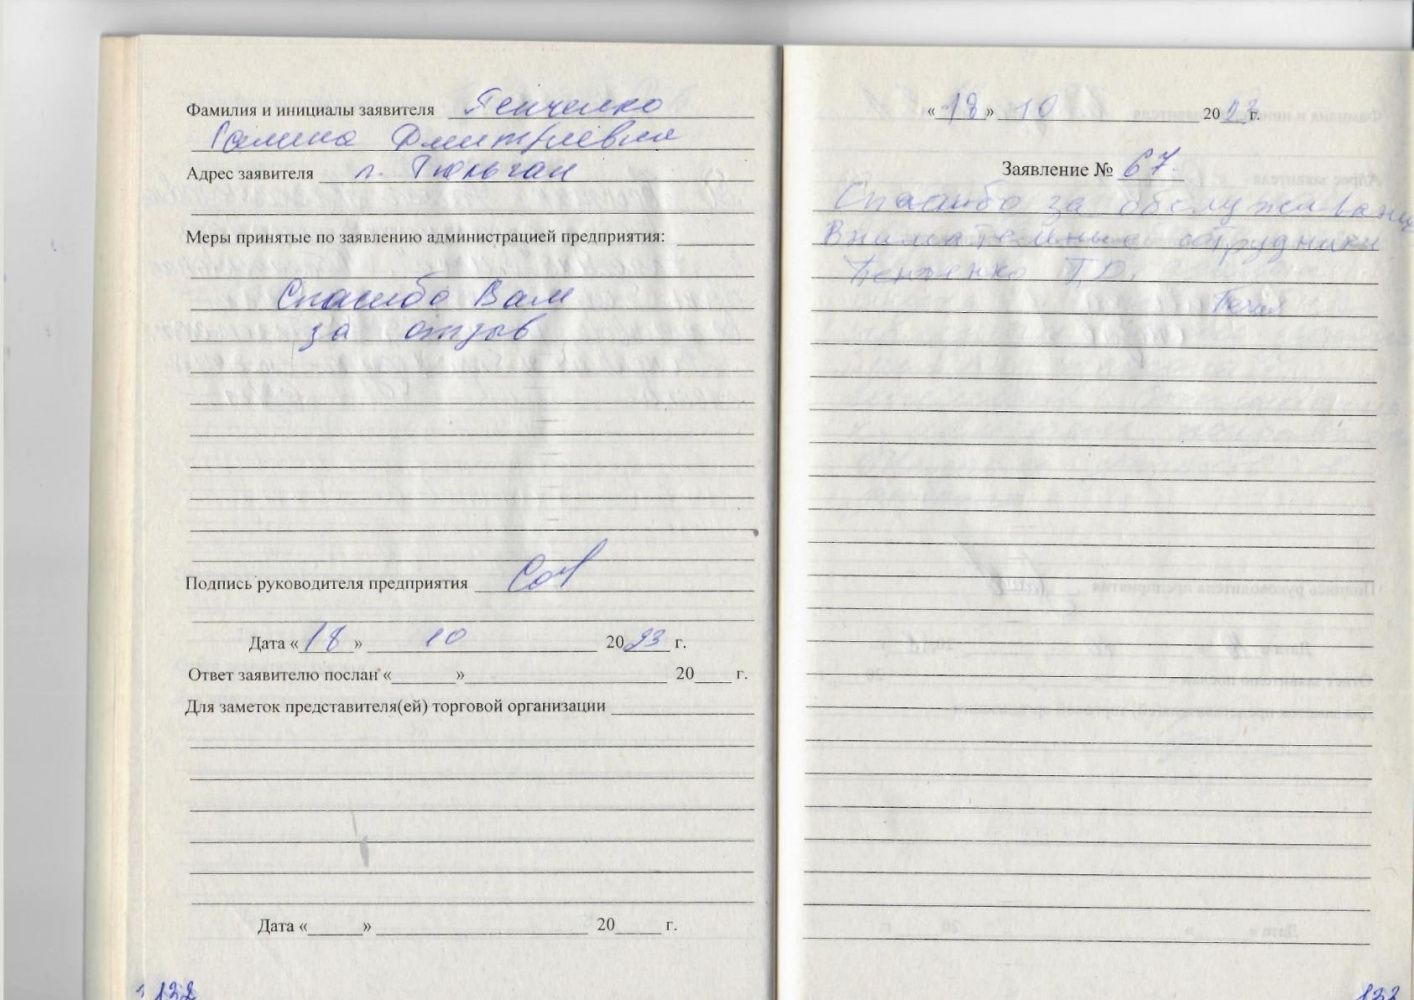 Фамилия и инициалы заявителя Пенченко
Галина Дмитриевна
Адрес заявителя п. Тюльган
Меры принятые по заявлению администрацией предприятия:
Спасибо Вам
за отзыв
Подпись руководителя предприятия
Дата «18» 10 2023 г.
Ответ заявителю послан «______»____________ 20____ г.
Для заметок представителя(ей) торговой организации
Дата «______» ____________ 20____ г.
132
«18» 10 2023 г.
Заявление № 67.
Спасибо за обслуживание
Внимательные сотрудники
132